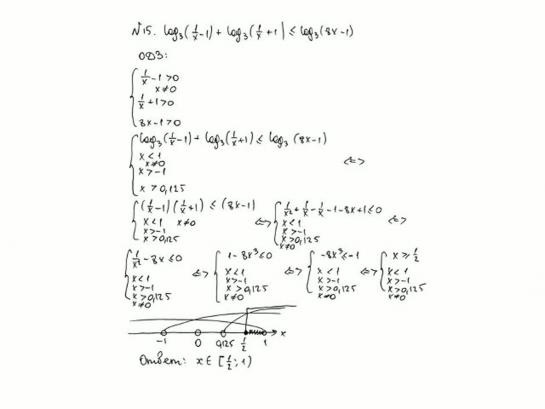 №15. log₃(1/x-1)+log₃(1/x+1)≤log₃(8x-1)
ОДЗ:
1/x-1>0
x≠0
1/x+1>0
8x-1>0
log₃(1/x-1)+log₃(1/x+1)≤log₃(8x-1)
x<1
x≠0
x>-1
x>0,125
⇔
(1/x-1)(1/x+1)≤(8x-1)
x<1 x≠0
x>-1
x>0,125
⇔
1/x²+1/x-1/x-1-8x+1≤0
x<1
x>-1
x>0,125
x≠0
⇔
1/x²-8x≤0
x<1
x>-1
x>0,125
x≠0
⇔
1-8x³≤0
x<1
x>-1
x>0,125
x≠0
⇔
-8x³≤-1
x<1
x>-1
x>0,125
x≠0
⇔
x≥1/2
x<1
x>-1
x>0,125
x≠0
-1 0 0,125 1/2 1 x
Ответ: x∈[1/2;1)